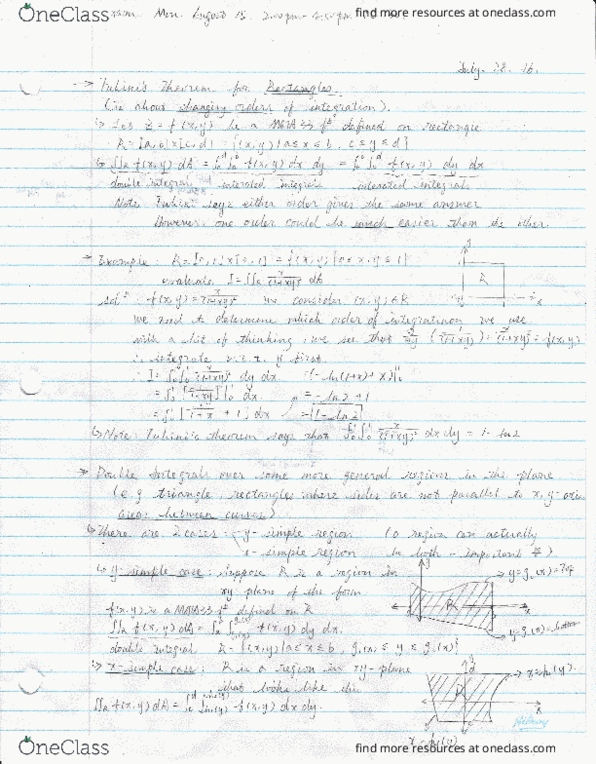 OneClass
find more resources at oneclass.com
exam Mon. August 15. 2:00pm - 4:30pm.
July. 28. 16.
→ Fubini's Theorem for Rectangles
(is about changing orders of integration).
↳ Let z = f(x,y) be a MATA33 fⁿ defined on rectangle
R = [a,b]x[c,d] = {(x,y) | a ≤ x ≤ b, c ≤ y ≤ d}
↳ ∬R f(x,y) dA = ∫c^d ∫a^b f(x,y) dx dy = ∫a^b ∫c^d f(x,y) dy dx
double integral iterated integral iterated integral
Note Fubini says either order gives the same answer
However, one order could be much easier than the other.
→ Example: R = [0,1]x[0,1] = {(x,y) | 0 ≤ x, y ≤ 1}
evaluate I = ∬R x/(1+xy)² dA
R
solⁿ: f(x,y) = x/(1+xy)² we consider (x,y) ∈ R
we need to determine which order of integration we use
with a bit of thinking, we see that
∴ integrate w.r.t. y first
∴ I = ∫0^1 ∫0^1 x/(1+xy)² dy dx
= [-ln(1+x) + x]|0^1
= -ln2 + 1
= ∫0^1 [-1/(1+x) + 1] dx
= 1 - ln2
↳ Note: Fubini's theorem says that ∫0^1 ∫0^1 x/(1+xy)² dx dy = 1 - ln2
→ Double Integrals over some more general regions in the plane
(e.g triangle, rectangles where sides are not parallel to x,y-axis
areas between curves)
↳ There are 2 cases: y-simple region (a region can actually
x-simple region be both - important *)
↳ y-simple case: suppose R is a region in
xy plane of the form
y = g₂(x) = top
R
f(x,y) is a MATA33 fⁿ defined on R
y = g₁(x) = bottom
double integral R = {(x,y) | a ≤ x ≤ b, g₁(x) ≤ y ≤ g₂(x)}
↳ x-simple case: R is a region in xy-plane
that looks like this
x = h₂(y).
x = h₁(y)
OneClass
find more resources at oneclass.com